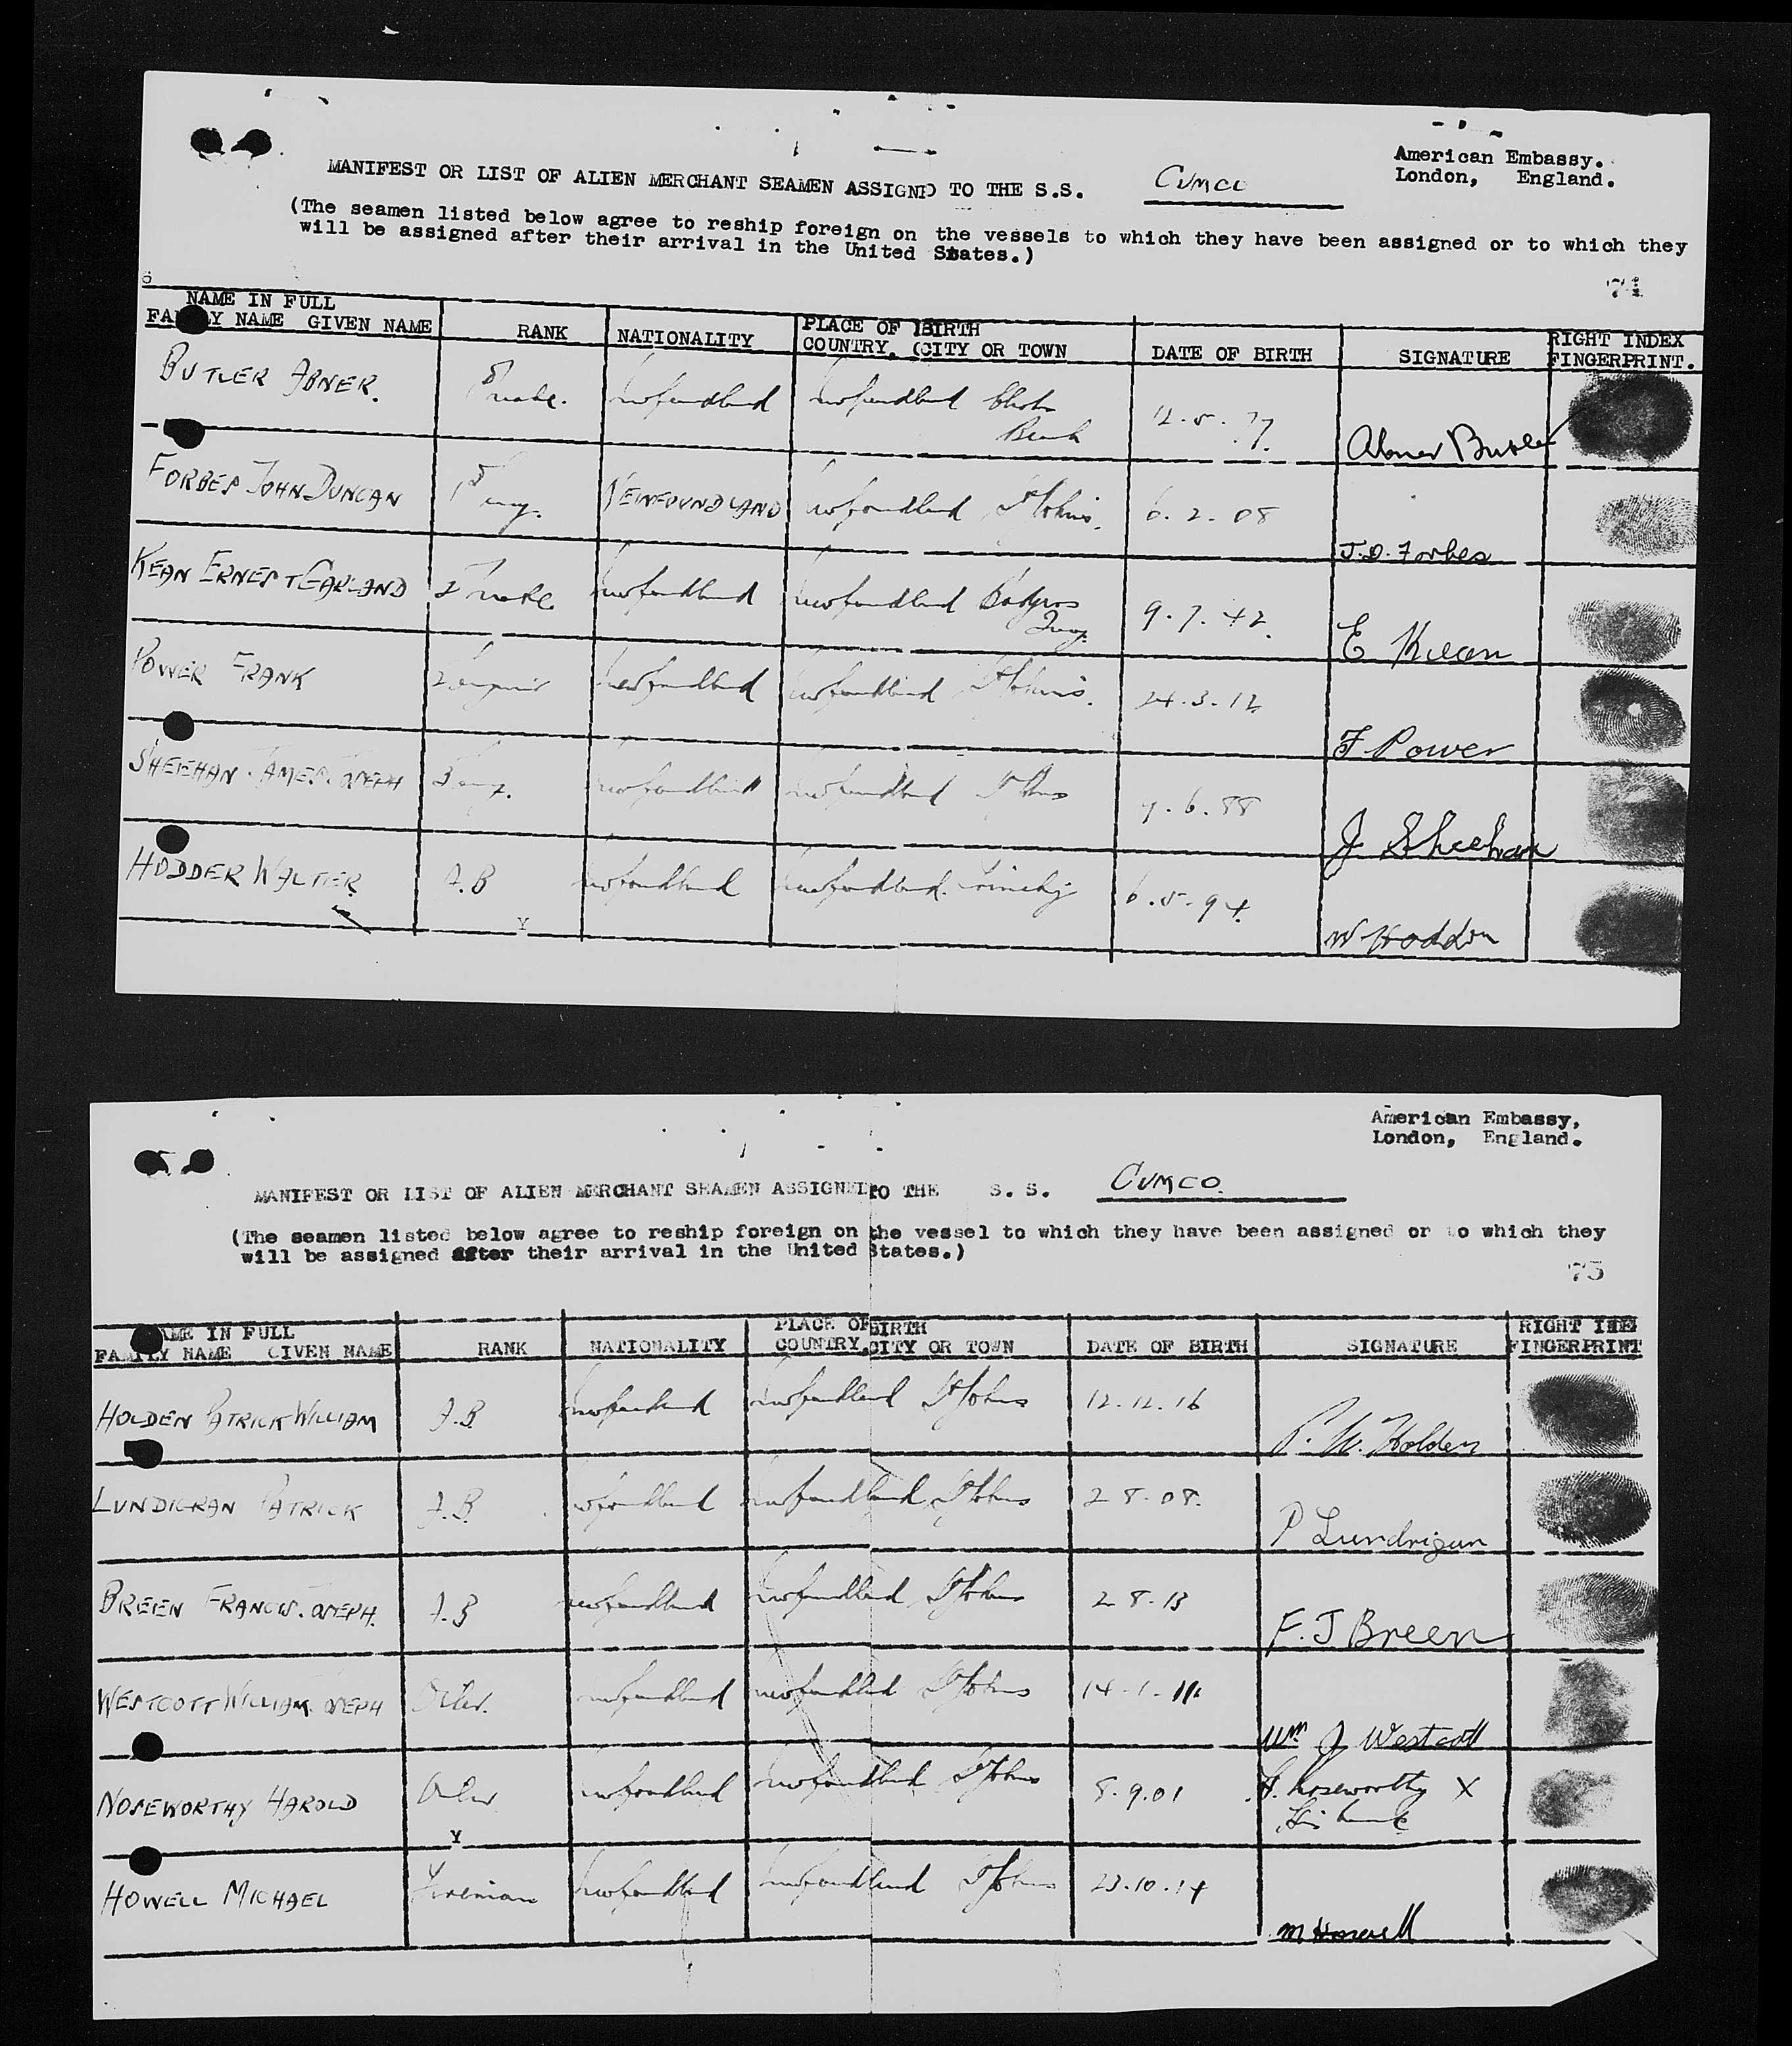 American Embassy.
London, England.
MANIFEST OR LIST OF ALIEN MERCHANT SEAMEN ASSIGND TO THE S.S. CUMCO
(The seamen listed below agree to reship foreign on the vessels to which they have been assigned or to which they
will be assigned after their arrival in the United States.)
74
NAME IN FULL
FAMILY NAME GIVEN NAME RANK NATIONALITY PLACE OF BIRTH COUNTRY, CITY OR TOWN DATE OF BIRTH SIGNATURE RIGHT INDEX FINGERPRINT.
BUTLER ABNER. Newfoundland Newfoundland 12.5. Abner Butler
FORBES JOHN DUNCAN NEWFOUNDLAND Newfoundland St Johns. 6.2.08 J.D. Forbes
KEAN ERNEST GARLAND 2 mate Newfoundland Newfoundland 9.7.42. E Kean
POWER FRANK Newfoundland Newfoundland St Johns. 24.3.12 F Power
SHEEHAN JAMES JOSEPH Newfoundland Newfoundland St Johns 7.6.88 J Sheehan
HODDER WALTER A.B Newfoundland Newfoundland. Trinity 6.5.94. W Hodder
American Embassy,
London, England.
MANIFEST OR LIST OF ALIEN MERCHANT SEAMEN ASSIGNED TO THE S. S. CUMCO.
(The seamen listed below agree to reship foreign on the vessel to which they have been assigned or to which they
will be assigned after their arrival in the United States.)
75
NAME IN FULL
FAMILY NAME GIVEN NAME RANK NATIONALITY PLACE OF BIRTH COUNTRY, CITY OR TOWN DATE OF BIRTH SIGNATURE RIGHT INDEX FINGERPRINT
HOLDEN PATRICK WILLIAM A.B. Newfoundland Newfoundland St Johns 12.12.16 P. W. Holden
LUNDIGRAN PATRICK A.B. Newfoundland Newfoundland St Johns 2 8.08. P Lundrigan
BREEN FRANCIS. JOSEPH. A.B Newfoundland Newfoundland St Johns 2 8.13 F. J Breen
WESTCOTT WILLIAM JOSEPH Oiler. Newfoundland Newfoundland St Johns 14.1. Wm J Westcott
NOSEWORTHY HAROLD Oiler Newfoundland Newfoundland St Johns 8.9.01 H. Noseworthy X
His mark
HOWELL MICHAEL Fireman Newfoundland Newfoundland St Johns 23.10.14 M Howell